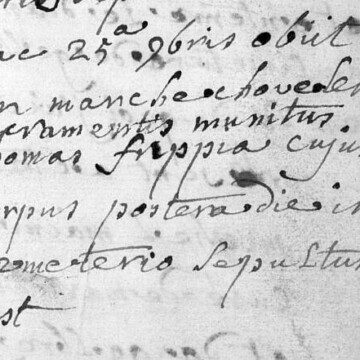 ac 25ª 9bris obiit
in manche chove der
cramentis munitus
omas frippia cuju
rpus postera die in
meterio sepultu
st